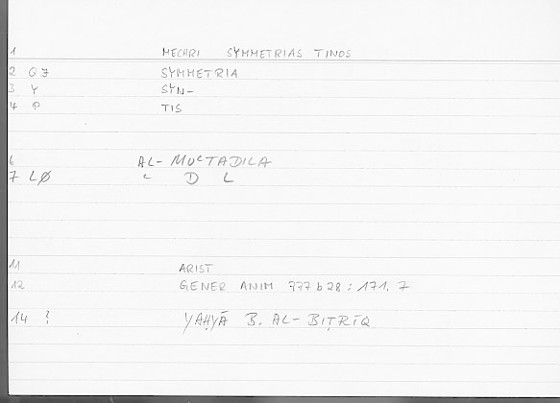 1 MECHRI SYMMETRIAS TINOS
2 G J SYMMETRIA
3 Y SYN-
4 P TIS
6 AL-MUʿTADILA
7 LØ ʿ D L
11 ARIST
12 GENER ANIM 777 b 28 : 171. 7
14 ? YAḤYĀ B. AL-BIṬRĪQ